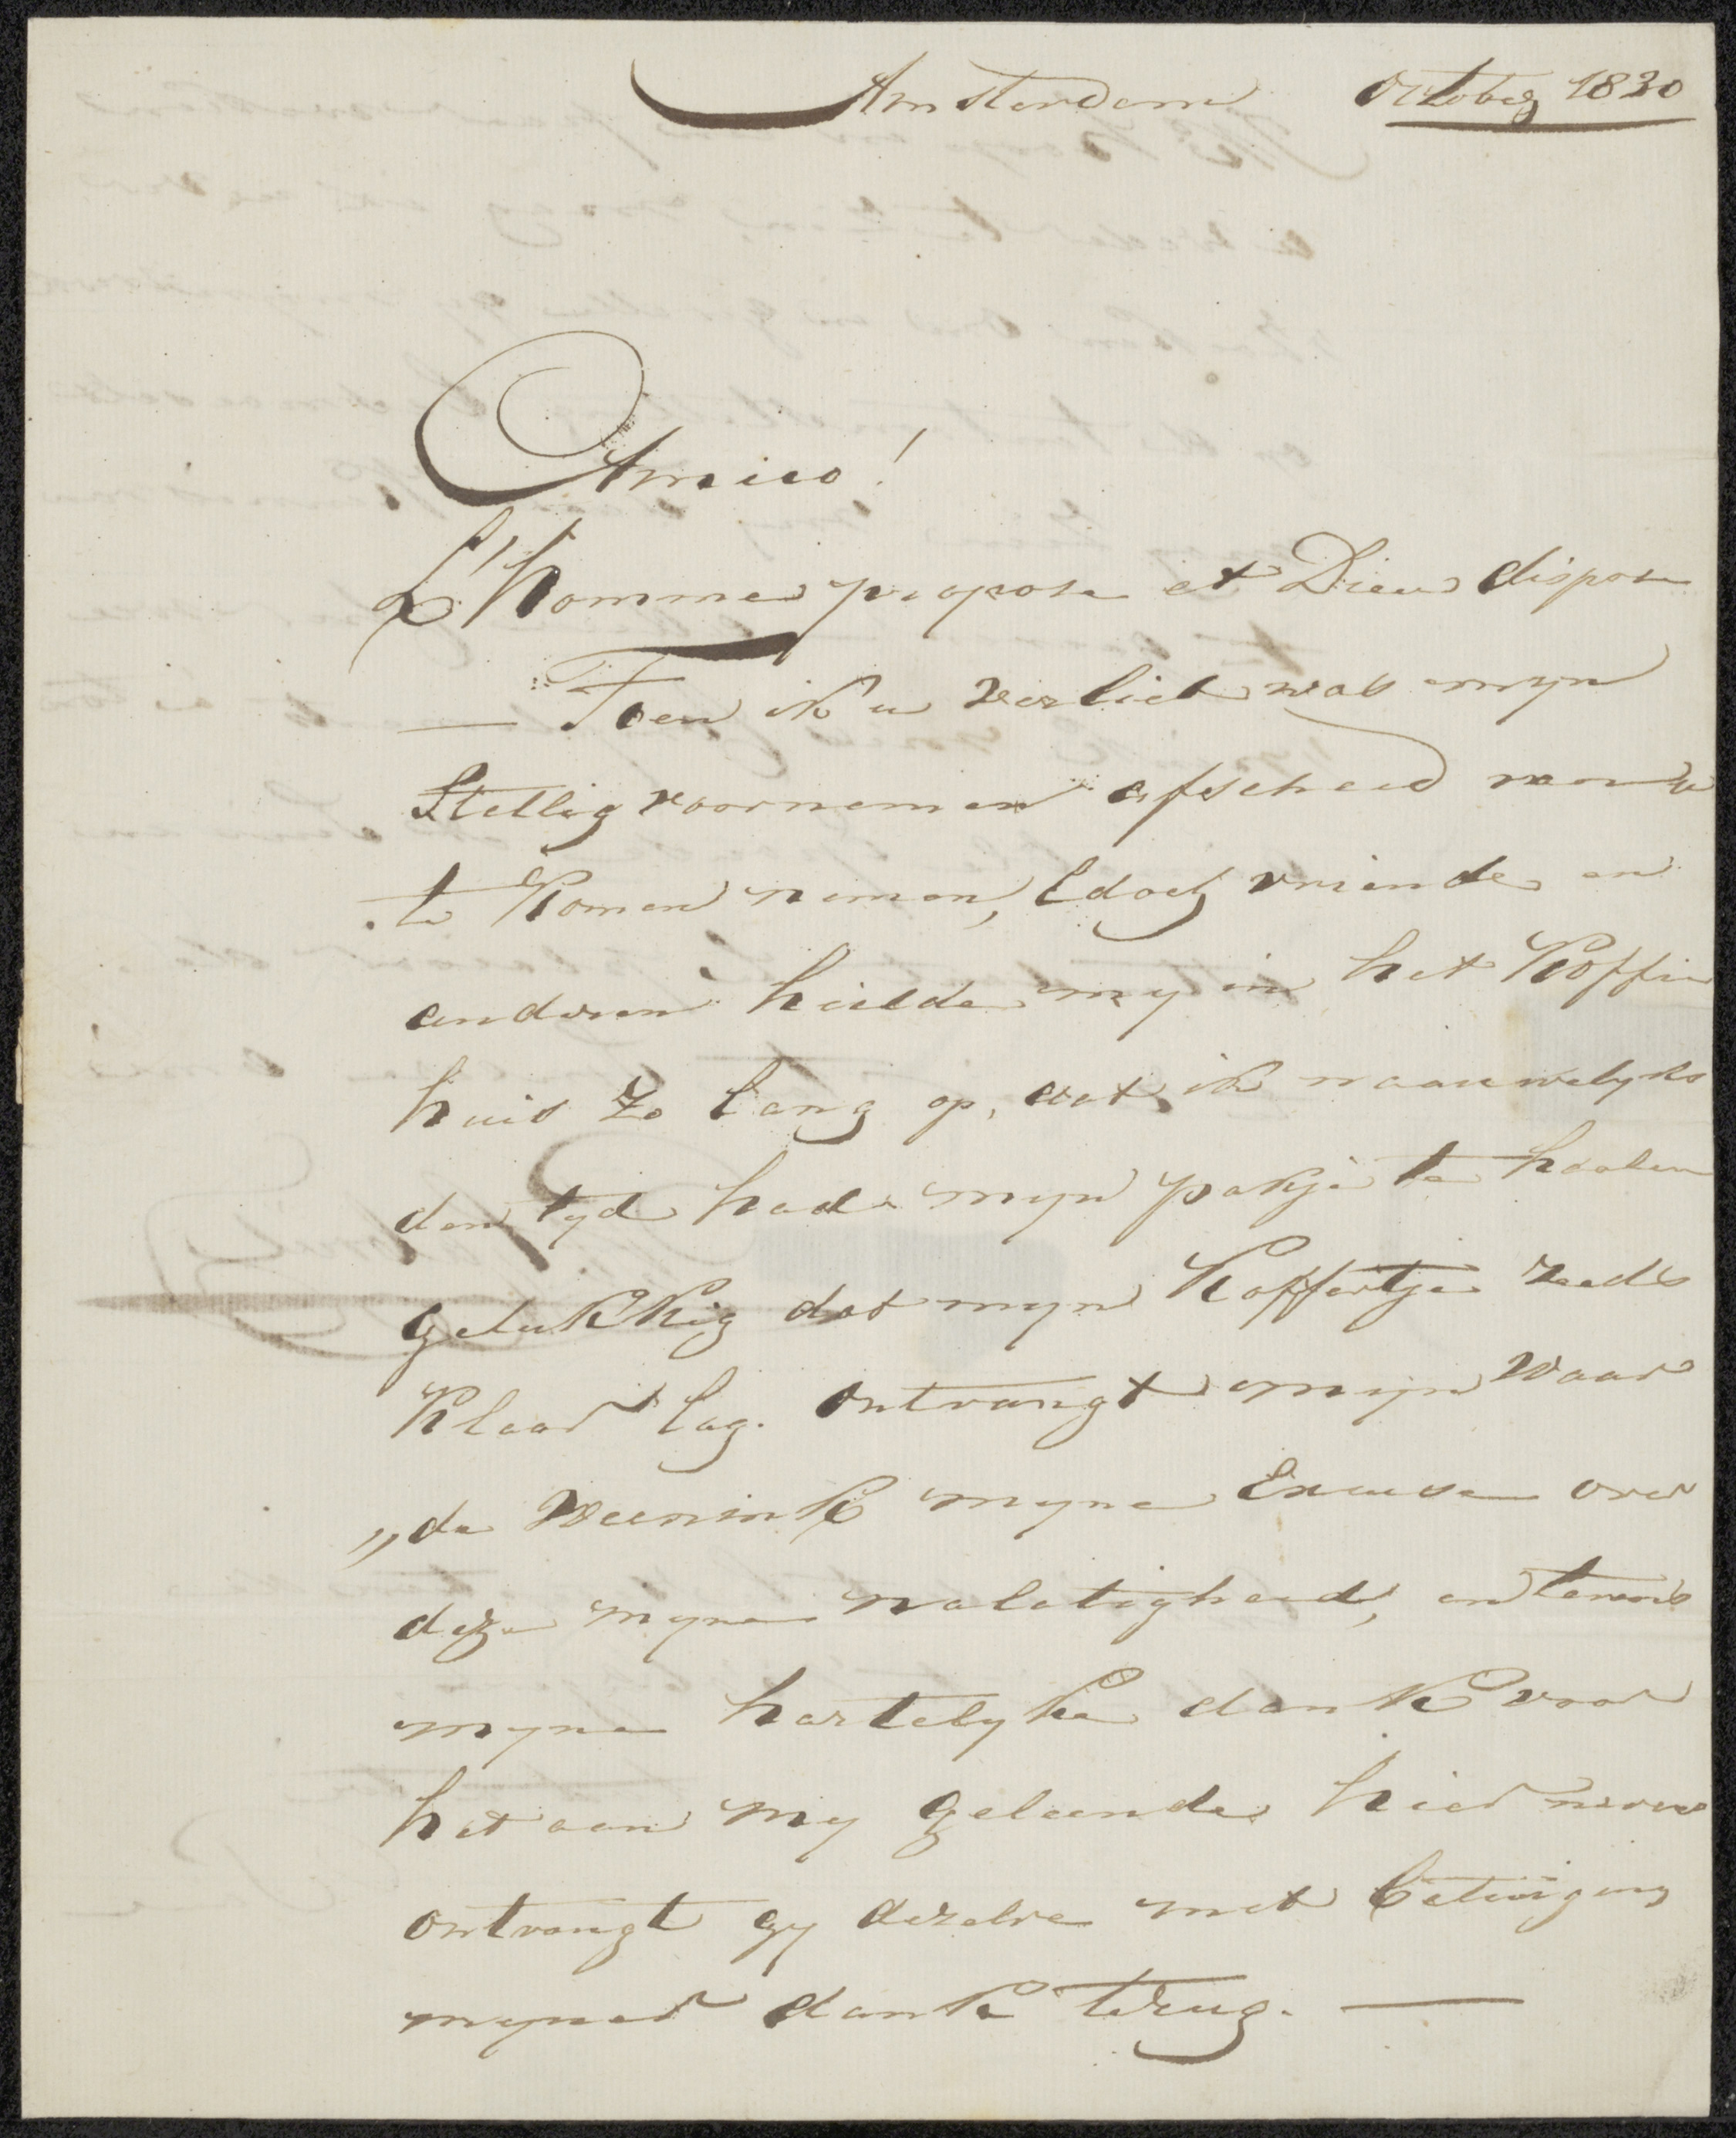 Amsterdam October 1830
Amico!
L'homme propose et Dieu dispose
— Toen ik u verliet was myn
Stellig voornemen afscheid van u
te komen nemen, Edoch vriende en
anderen hielde my in het Koffie
huis zo lang op, dat ik naauwelyks
den tyd had myn pakje te haalen
gelukkig dat myn Koffertje reeds
klaar lag. Ontvangt myn Waar
„de Weenink myne Excuse over
deze myne nalatigheid, en tevens
myne hartelyke dank voor
het aan my geleende hier nevens
ontvangt gy dezelve met betuiging
myner dank terug. —